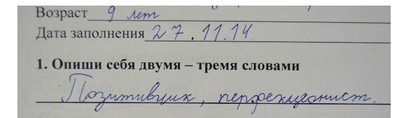 Возраст 9 лет
Дата заполнения 27.11.14
1. Опиши себя двумя – тремя словами
Позитивщик, перфекционист.